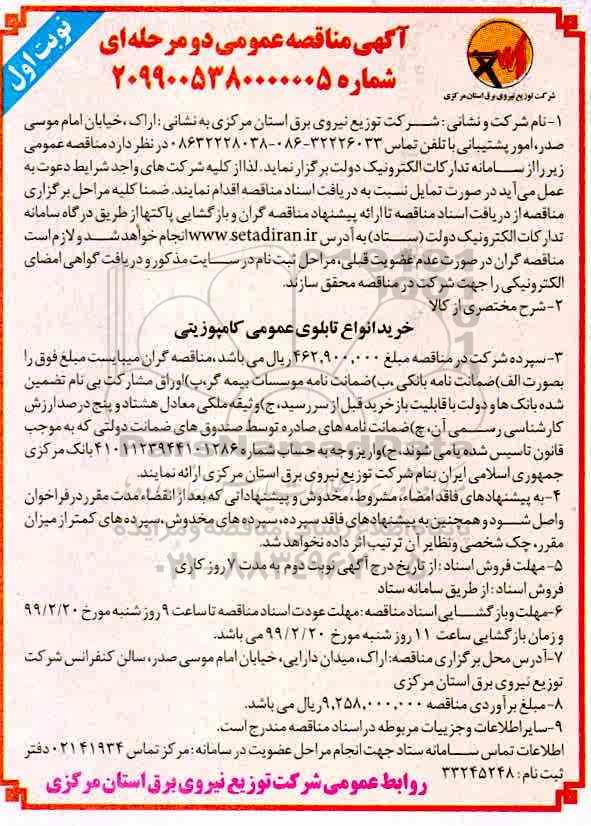 نوبت اول
آگهی مناقصه عمومی دو مرحله‌ای
شماره ۲۰۹۹۰۰۵۳۸۰۰۰۰۰۰۵
شرکت توزیع نیروی برق استان مرکزی
۱-نام شرکت و نشانی : شرکت توزیع نیروی برق استان مرکزی به نشانی : اراک ،خیابان امام موسی
صدر، امور پشتیبانی با تلفن تماس ۳۲۲۲۶۰۳۳-۰۸۶-۰۸۶۳۲۲۲۸۰۳۸ در نظر دارد مناقصه عمومی
زیر را از سامانه تدارکات الکترونیک دولت برگزار نماید. لذا از کلیه شرکت های واجد شرایط دعوت به
عمل می آید در صورت تمایل نسبت به دریافت اسناد مناقصه اقدام نمایند. ضمنا کلیه مراحل برگزاری
مناقصه از دریافت اسناد مناقصه تا ارائه پیشنهاد مناقصه گران و بازگشایی پاکتها از طریق درگاه سامانه
تدارکات الکترونیک دولت (ستاد) به آدرس www.setadiran.ir انجام خواهد شد و لازم است
مناقصه گران در صورت عدم عضویت قبلی، مراحل ثبت نام در سایت مذکور و دریافت گواهی امضای
الکترونیکی را جهت شرکت در مناقصه محقق سازند.
۲-شرح مختصری از کالا
خرید انواع تابلوی عمومی کامپوزیتی
۳-سپرده شرکت در مناقصه مبلغ ۴۶۲,۹۰۰,۰۰۰ ریال می باشد، مناقصه گران میبایست مبلغ فوق را
بصورت الف)ضمانت نامه بانکی ،ب)ضمانت نامه موسسات بیمه گر،پ)اوراق مشارکت بی نام تضمین
شده بانک ها و دولت با قابلیت باز خرید قبل از سررسید، ج)وثیقه ملکی معادل هشتاد و پنج درصد ارزش
کارشناسی رسمی آن، چ)ضمانت نامه های صادره توسط صندوق های ضمانت دولتی که به موجب
قانون تاسیس شده یا می شوند، ح)واریز وجه به حساب شماره ۴۱۰۱۱۲۳۹۴۴۱۰۱۲۸۶ بانک مرکزی
جمهوری اسلامی ایران بنام شرکت توزیع نیروی برق استان مرکزی ارائه نمایند.
۴- به پیشنهادهای فاقد امضاء، مشروط، مخدوش و پیشنهاداتی که بعد از انقضاء مدت مقرر در فراخوان
واصل شود و همچنین به پیشنهادهای فاقد سپرده، سپرده های مخدوش، سپرده های کمتر از میزان
مقرر، چک شخصی و نظایر آن ترتیب اثر داده نخواهد شد.
۵- مهلت فروش اسناد : از تاریخ درج آگهی نوبت دوم به مدت ۷ روز کاری
فروش اسناد : از طریق سامانه ستاد
۶-مهلت و بازگشایی اسناد مناقصه : مهلت عودت اسناد مناقصه تا ساعت ۹ روز شنبه مورخ ۹۹/۲/۲۰
و زمان بازگشایی ساعت ۱۱ روز شنبه مورخ ۹۹/۲/۲۰ می باشد.
۷-آدرس محل برگزاری مناقصه: اراک، میدان دارایی، خیابان امام موسی صدر، سالن کنفرانس شرکت
توزیع نیروی برق استان مرکزی
۸-مبلغ برآوردی مناقصه ۹,۲۵۸,۰۰۰,۰۰۰ ریال می باشد.
۹-سایر اطلاعات و جزییات مربوطه در اسناد مناقصه مندرج است.
اطلاعات تماس سامانه ستاد جهت انجام مراحل عضویت در سامانه : مرکز تماس ۰۲۱۴۱۹۳۴ دفتر
ثبت نام : ۳۳۲۴۵۲۴۸
روابط عمومی شرکت توزیع نیروی برق استان مرکزی